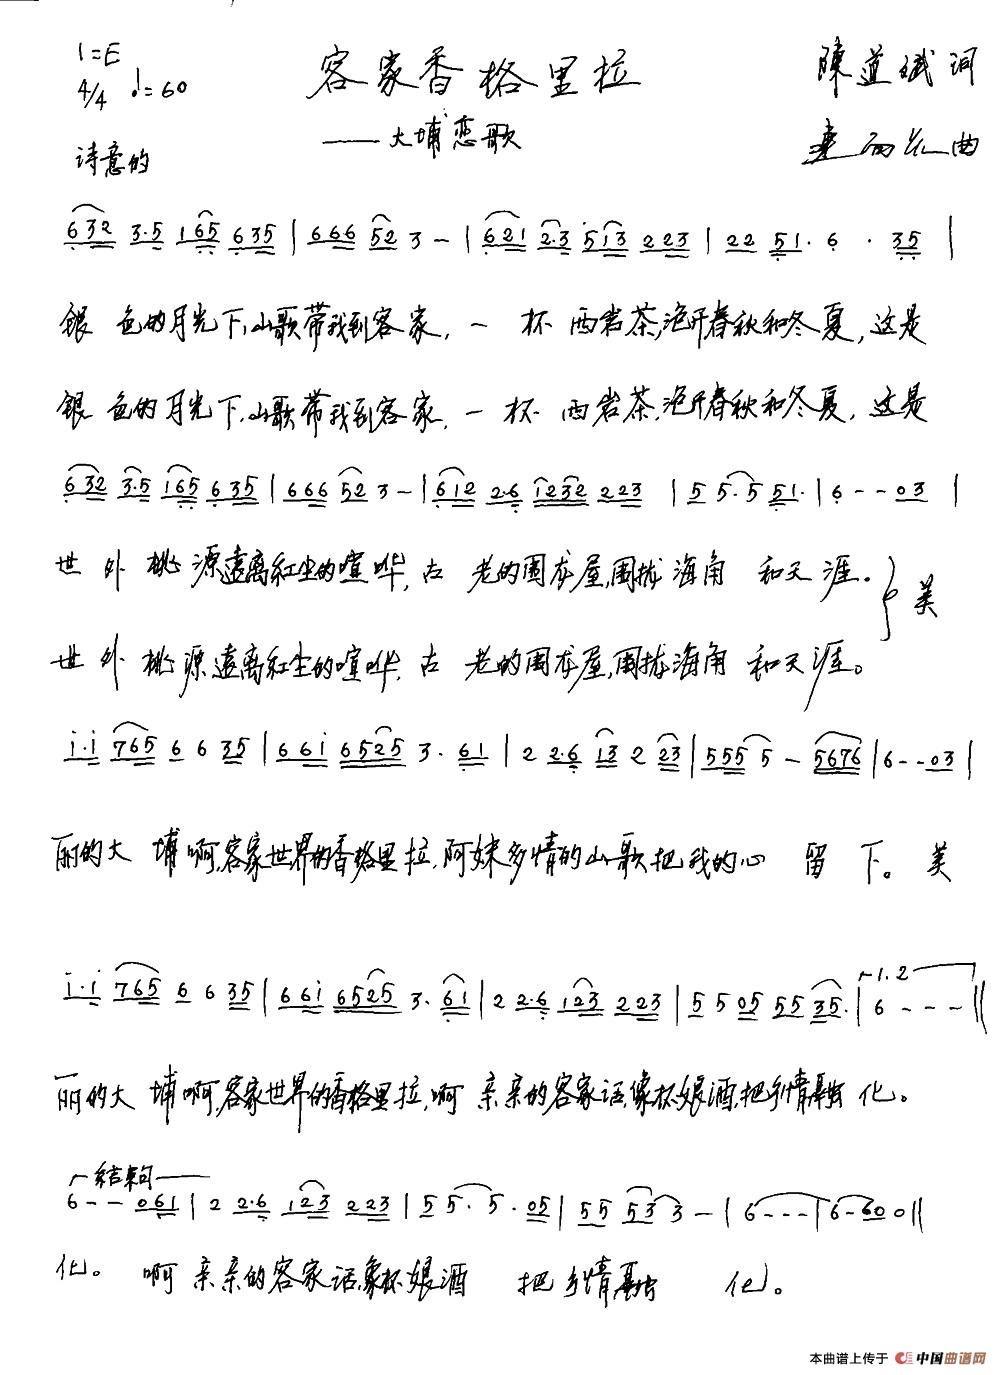 1=E
4/4 ♩=60
客家香格里拉
——大埔恋歌
陳道斌词
曲
诗意的
632 3·5 165 635 | 666 52 3 – | 621 2·3 513 223 | 22 51· 6 · 35 |
銀色的月光下,山歌带我到客家,一杯西岩茶,泡开春秋和冬夏,这是
銀色的月光下,山歌带我到客家,一杯西岩茶,泡开春秋和冬夏,这是
632 3·5 165 635 | 666 52 3 – | 612 2·6 1232 223 | 5 5·5 51· | 6 – – 03 |
世外桃源遠离紅尘的喧哗,古老的围龙屋,围拢海角和天涯。} 美
世外桃源遠离紅尘的喧哗,古老的围龙屋,围拢海角和天涯。
i·i 765 6 6 35 | 66i 6525 3· 61 | 2 2·6 13 2 23 | 555 5 – 5676 | 6 – – 03 |
丽的大埔啊,客家世界的香格里拉,阿妹多情的山歌把我的心留下。美
i·i 765 6 6 35 | 66i 6525 3· 61 | 2 2·6 123 223 | 5 5 05 55 35· | 1.2 6 – – – ||
丽的大埔啊,客家世界的香格里拉,啊亲亲的客家话,像杯娘酒,把乡情融化。
结束句
6 – – 061 | 2 2·6 123 223 | 5 5· 5· 05 | 55 53 3 – | 6 – – – | 6 – 60 0 ||
化。啊亲亲的客家话,像杯娘酒把乡情融化。
本曲谱上传于 中国曲谱网